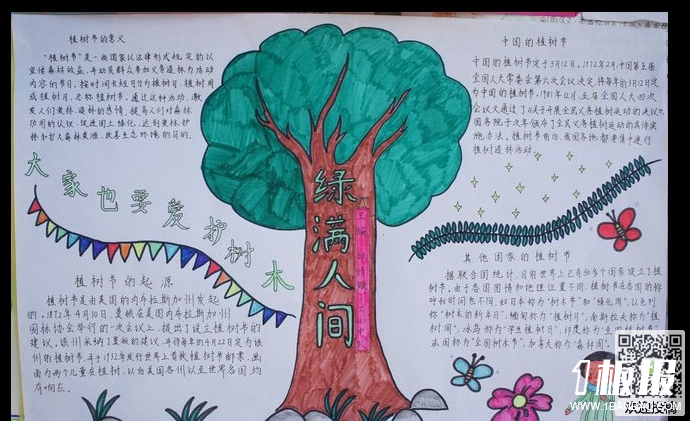 植树节的意义
"植树节"是一些国家以法律形式规定的以
宣传森林效益,并动员群众参加义务造林为活动
内容的节日。按时间长短可分为植树日、植树周
或植树月,总称植树节。通过这种活动,激
发人们爱林、造林的感情,提高人们对森林
功用的认识,促进国土绿化,达到爱林护
林和扩大森林资源、改善生态环境的目的。
大家也要爱护树木
植树节的起源
植树节是由美国的内布拉斯加州发起
的。1872年4月10日,莫顿在美国内布拉斯加州
园林协会举行的一次会议上,提出了设立植树节的
建议。该州采纳了莫顿的建议,并将每年的4月22日定为该
州的植树节,并于1932年发行世界上首枚植树节邮票,画
面为两个儿童在植树。以后美国各州以至世界各国均
有响应。
绿满人间
中国的植树节
中国的植树节定于3月12日。1979年2月,中国第五届
全国人大常委会第六次会议决定,将每年的3月12日定
为中国的植树节。1981年12月,五届全国人大四次
会议又通过了《关于开展全民义务植树运动的决议》。
国务院于次年颁布了全民义务植树运动的具体实
施办法。植树节前后,我国各地都要集中进行
植树造林活动。
其他国家的植树节
据联合国统计,目前世界上已有50多个国家设立了植
树节。由于各国国情和地理位置不同,植树节在各国的称
呼和时间也不同,如日本称为"树木节"和"绿化周";以色列
称"树木的新年日";缅甸称为"植树月";南斯拉夫称为"植
树周";冰岛称为"学生植树日";印度称为"全国植树节";
法国称为"全国树木节";加拿大称为"森林周"。
1板报
WWW.1BANBAO.COM